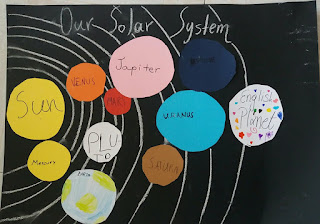 Our Solar System
Jupiter
VENUS
MARS
Sun
URANUS
English
Planet
PLU
TO
Mercury
SATURN